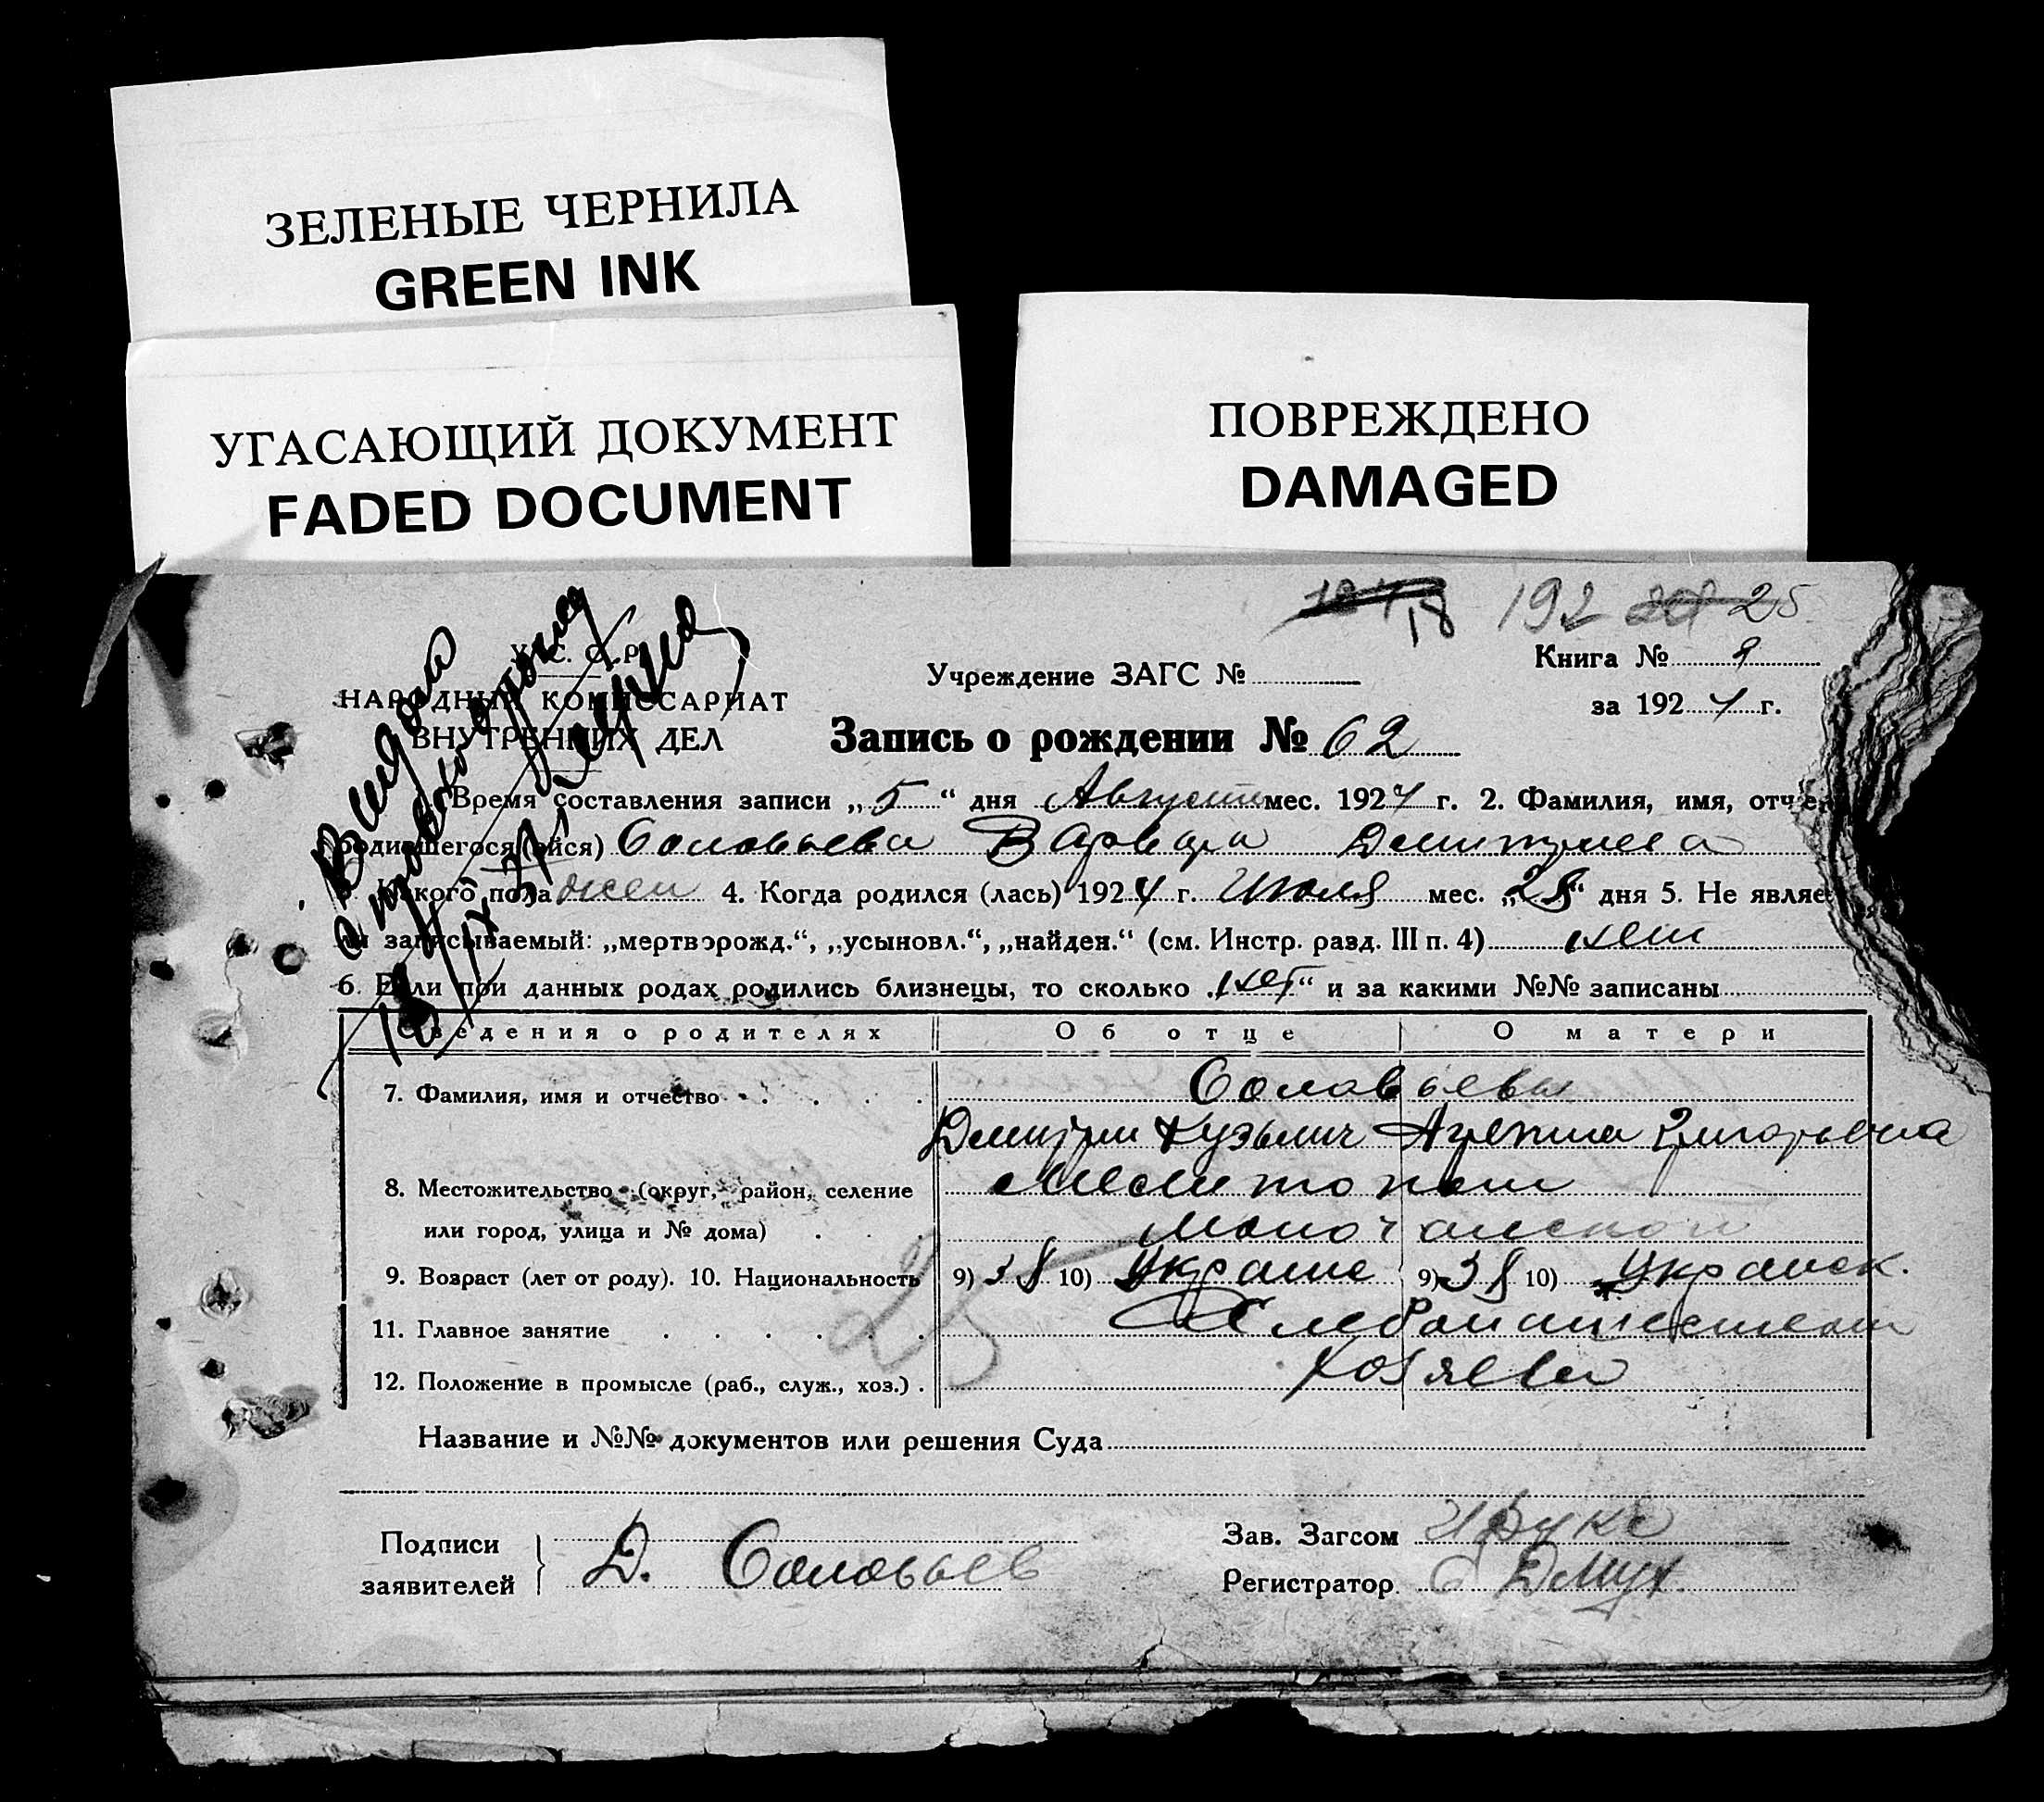 ЗЕЛЕНЫЕ ЧЕРНИЛА
GREEN INK
УГАСАЮЩИЙ ДОКУМЕНТ
FADED DOCUMENT
ПОВРЕЖДЕНО
DAMAGED
18 192 25
У. С. С. Р.
НАРОДНЫЙ КОМИССАРИАТ
ВНУТРЕННИХ ДЕЛ
Выдано
Учреждение ЗАГС №
Книга №
за 1924 г.
Запись о рождении № 62
Время составления записи „5“ дня Августа мес. 1924 г. 2. Фамилия, имя, отче
родившегося (ейся) Соловьева Варвара Дмитриева
Какого пола жен 4. Когда родился (лась) 1924 г. Июля мес. „28“ дня 5. Не являе
ли записываемый: „мертворожд.“, „усыновл.“, „найден.“ (см. Инстр. разд. III п. 4) нет
6. Если при данных родах родились близнецы, то сколько „нет“ и за какими №№ записаны
Сведения о родителях Об отце О матери
7. Фамилия, имя и отчество Соловьевы
Дмитрий Кузьмич Григорьевна
8. Местожительство (округ, район, селение
или город, улица и № дома)
9. Возраст (лет от роду). 10. Национальность 9) 38 10) Украине 9) 38 10) Украинск.
25
11. Главное занятие Хлебопашеством
12. Положение в промысле (раб., служ., хоз.) Хозяева
Название и №№ документов или решения Суда
Подписи
заявителей Д. Соловьев
Зав. Загсом
Регистратор